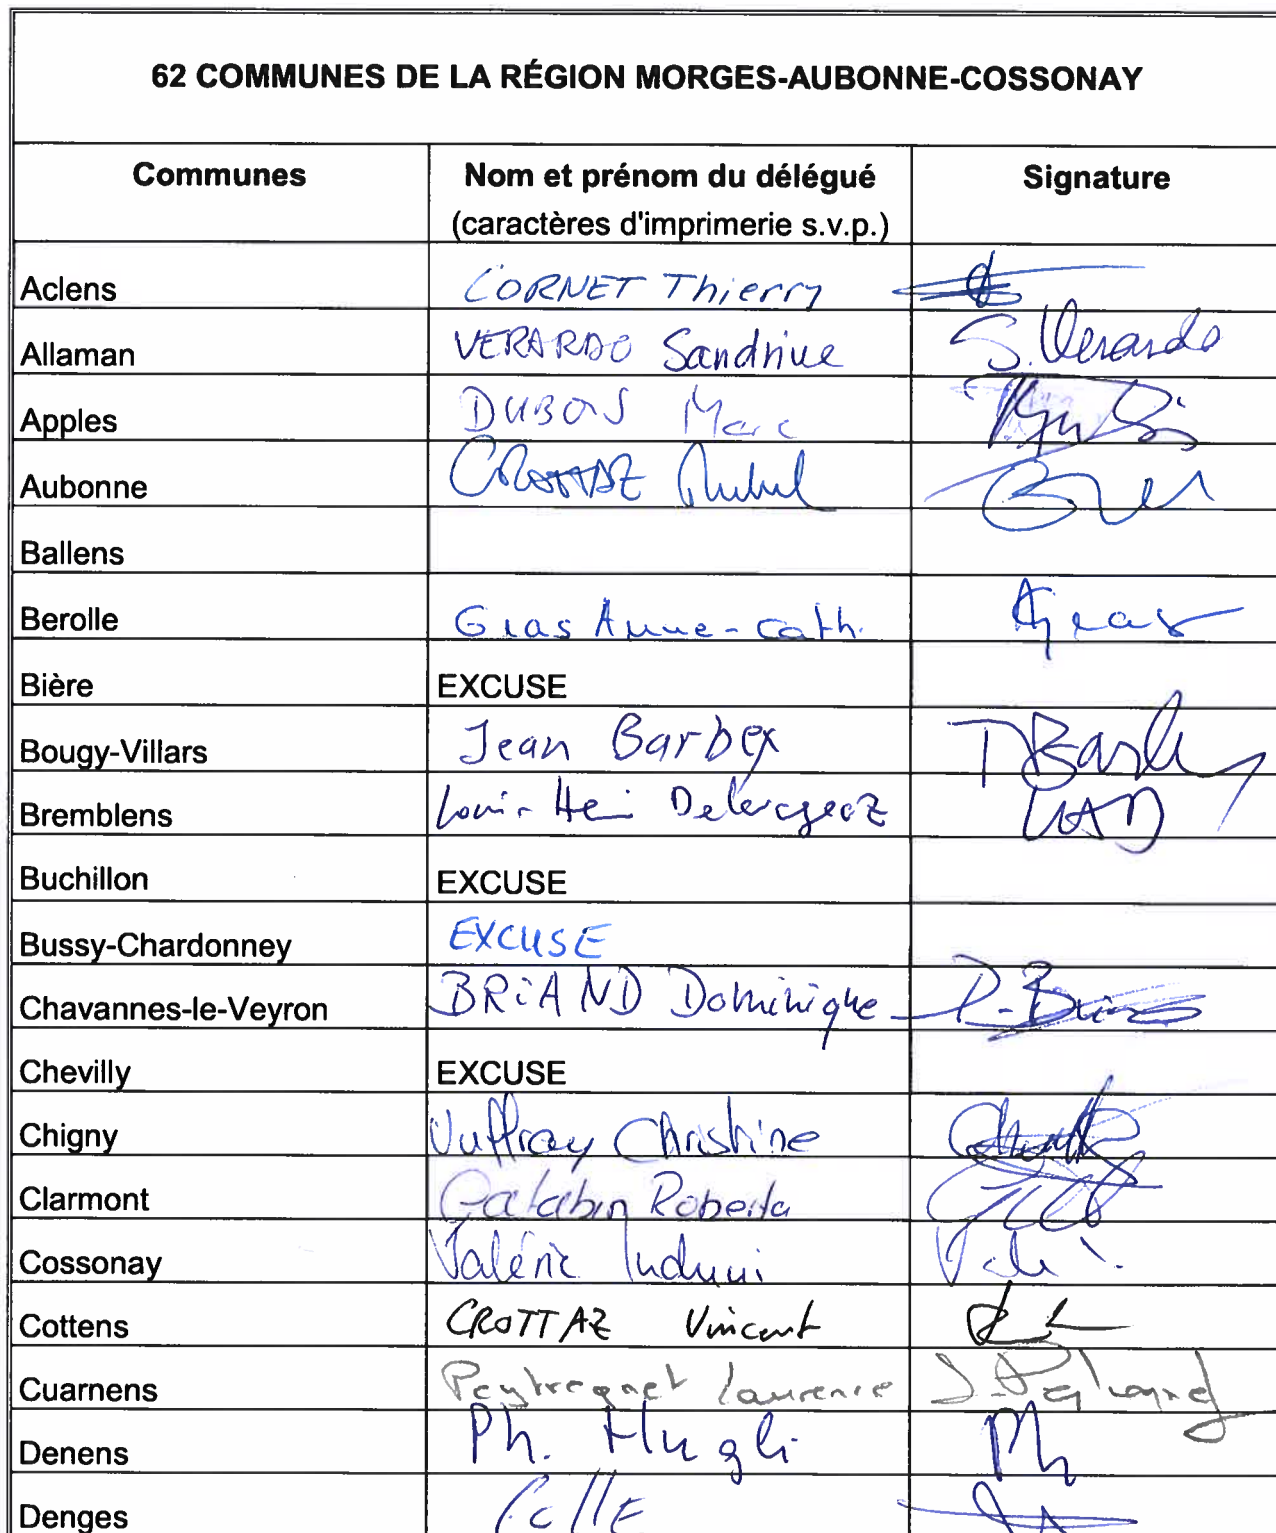 62 COMMUNES DE LA RÉGION MORGES-AUBONNE-COSSONAY
Communes Nom et prénom du délégué Signature
(caractères d'imprimerie s.v.p.)
Aclens CORNET Thierry
Allaman VERARDO Sandrine S. Verardo
Apples DUBOIS Marc
Aubonne CROTTAZ Michel
Ballens
Berolle Gras Anne-Cath.
Bière EXCUSE
Bougy-Villars Jean Barbey
Bremblens Louis-Henri Delarageaz LHD
Buchillon EXCUSE
Bussy-Chardonney EXCUSE
Chavannes-le-Veyron BRiAND Dominique
Chevilly EXCUSE
Chigny Vuffray Christine
Clarmont Roberta
Cossonay Valérie Induni
Cottens CROTTAZ Vincent
Cuarnens Peytregnet Laurence
Denens Ph. Hugli Ph
Denges